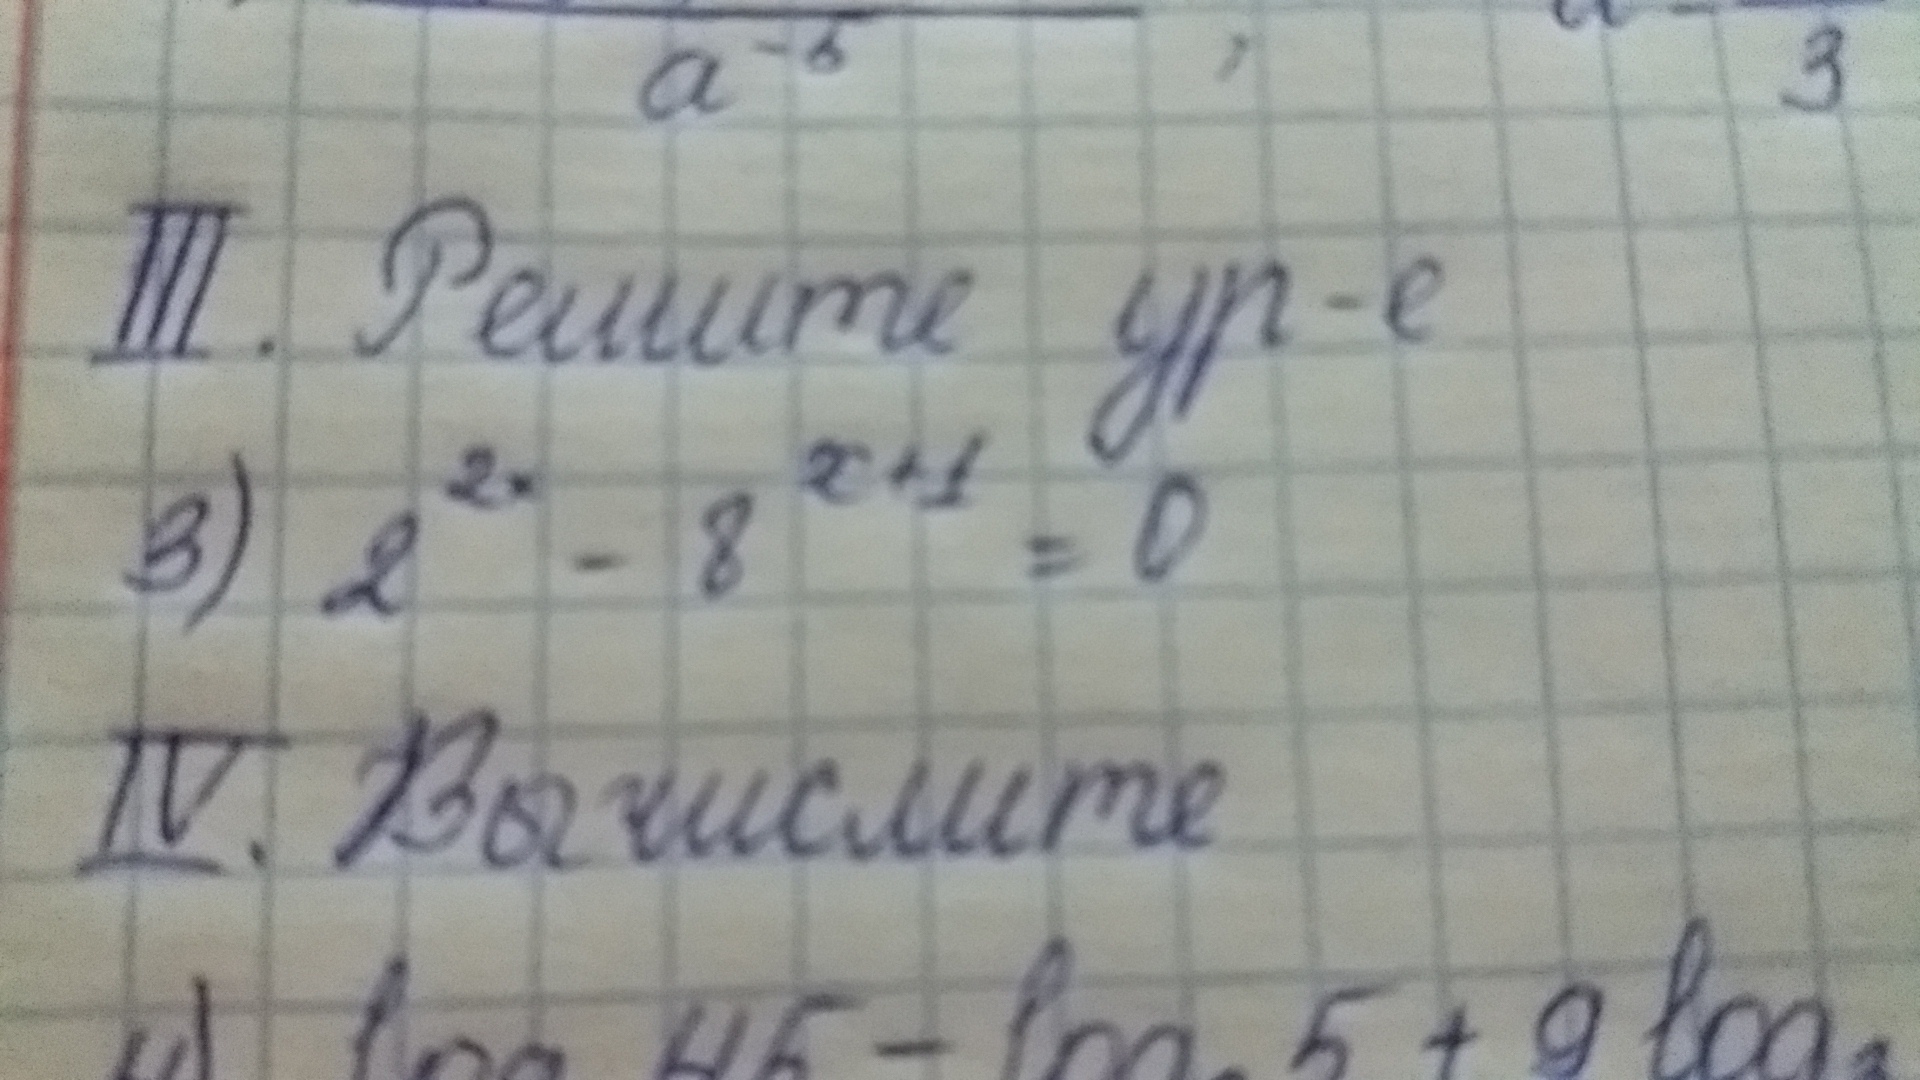 a⁻⁵ , 3
III. Решите ур-е
3) 2²ˣ - 8ˣ⁺¹ = 0
IV. Вычислите
4) log 45 - log 5 + 9 log₃